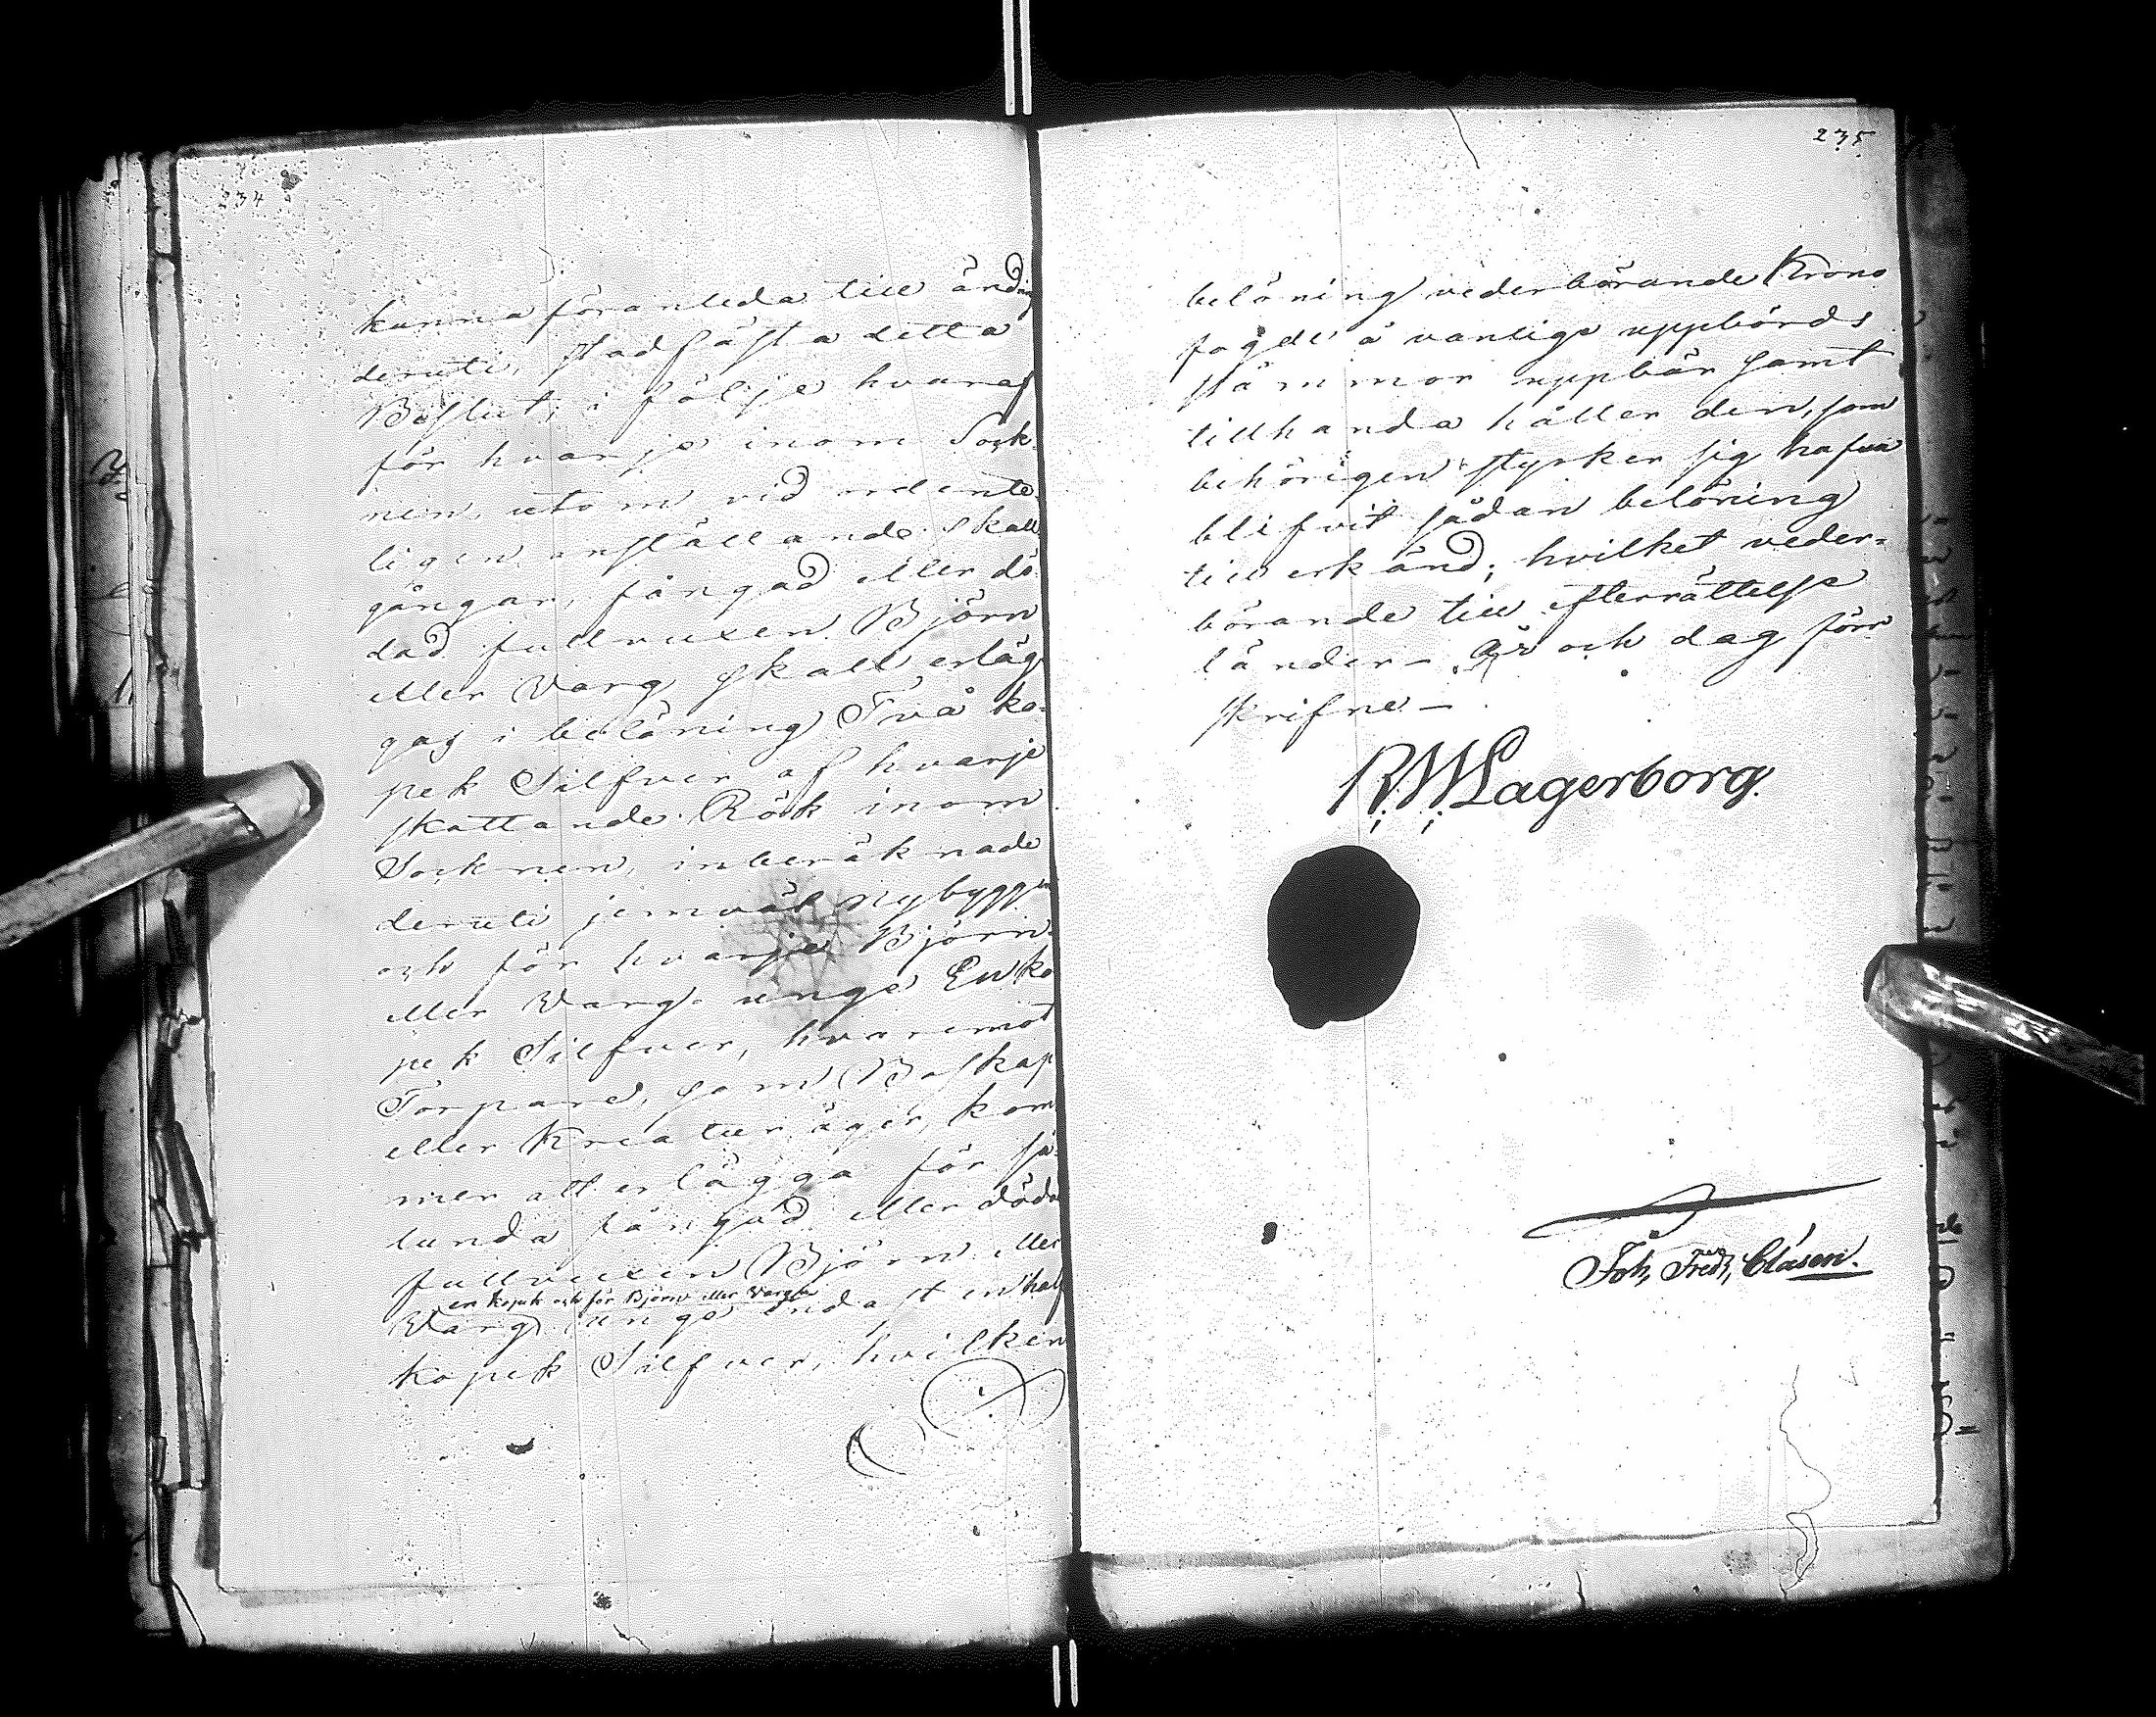 234
kunna föranleda till ändring
deruti, stadfästa detta
Beslut; i följe hvaraf
för hvarje inom Sock-
nen, utom vid ordente-
ligen anställande skall
gångar, fångad eller dö-
dad fullvuxen Björn
eller Varg skall erläg
gas i belöning Två ko-
pek Silfver af hvarje
skattande Rök inom
Socknen, inberäknade
deruti jemväl nybyggen
och för hvarje Björn-
eller Varg-unge En ko
pek Silfver, hvaremot
Torpare, som Boskap
eller Kreatur äger, kom
mer att erlägga för så-
lunda fångad eller döda
fullvuxen Björn eller
en kopek och för Björn eller Varg
Varg unge endast en half
kopek Silfver, hvilken
235
belöning vederbörande Krono
fogde å vanliga uppbörds
stämmor uppbär samt
tillhanda håller den, som
behörigen styrker sig hafva
blifvit sådan belöning
tillerkänd; hvilket veder-
börande till efterrättelse
länder – År och dag förr
skrifne –
R. W. Lagerborg.
Joh, Fredr, Clasen.